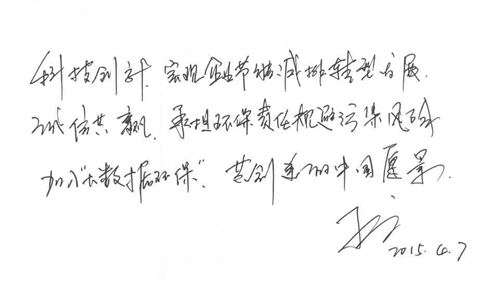 科技创新 实现企业节能减排转型发展
诚信共赢 承担环保责任规避污染风险
加入“大数据环保” 共创美丽中国愿景
2015.4.7